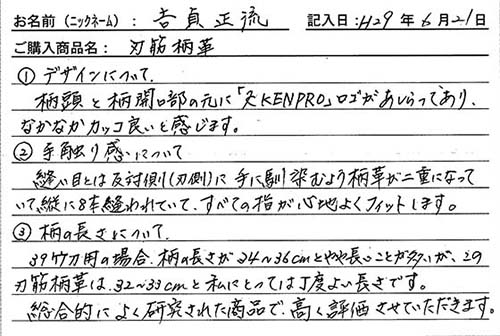 お名前（ニックネーム）：吉貞正流　記入日：H29年6月21日
ご購入商品名：刃筋柄革
①デザインについて.
柄頭と柄開口部の元に「天KENPRO」ロゴがあしらってあり、
なかなかカッコ良いと感じます。
②手触り感いについて
縫い目とは反対側(刃側)に手に馴染むよう柄革が二重になって
いて縦に8本縫われていて、すべての指が心地よくフィットします。
③柄の長さについて.
39竹刀用の場合、柄の長さが34〜36cmとやや長いことが多いが、この
刃筋柄革は、32〜33cmと私にとっては丁度よい長さです。
総合的によく研究された商品で、高く評価させていただきます。